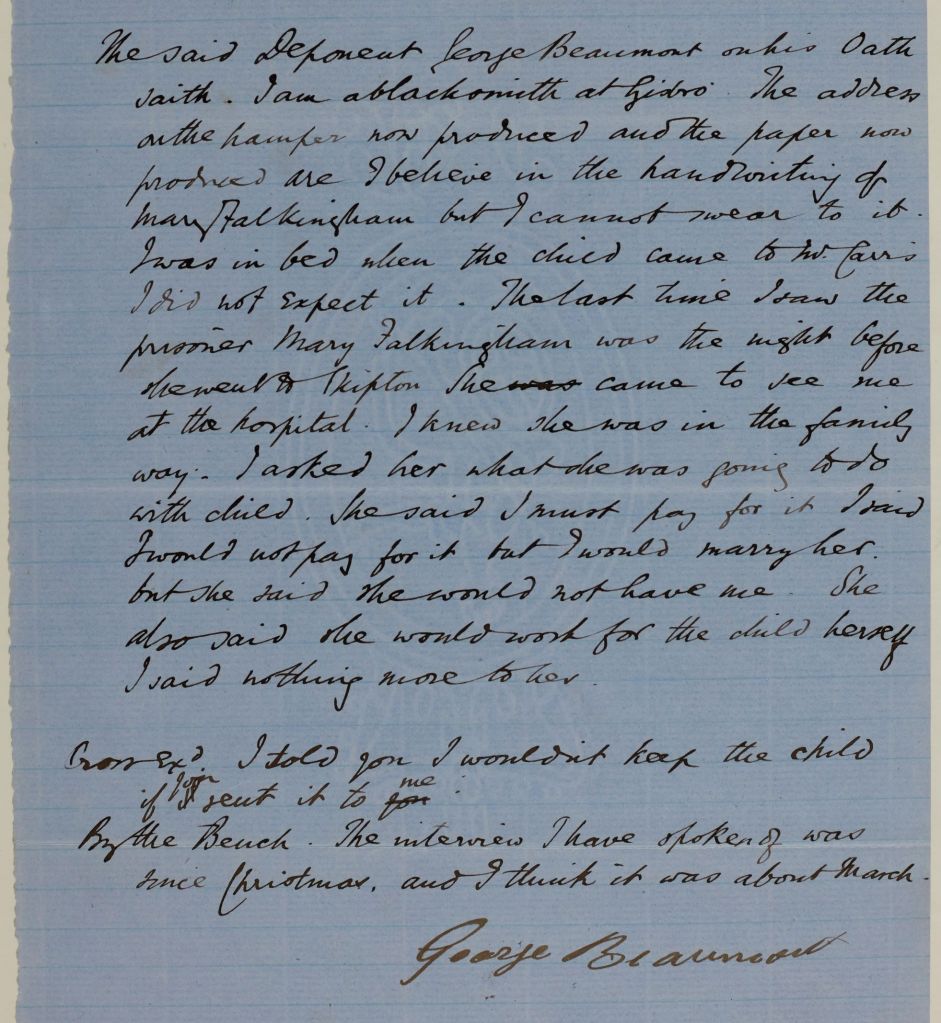 The said Deponent George Beaumont on his Oath
saith. I am a blacksmith at The address
on the hamper now produced and the paper now
produced are I believe in the handwriting of
Mary Falkingham but I cannot swear to it.
I was in bed when the child came to Mr. Carr's
I did not expect it. The last time I saw the
prisoner Mary Falkingham was the night before
she went to Skipton She was came to see me
at the hospital. I knew she was in the family
way. I asked her what she was going to do
with child. She said I must pay for it I said
I would not pay for it but I would marry her.
but she said she would not have me. She
also said she would work for the child herself
I said nothing more to her.
Cross Exd I told you I wouldn't keep the child
if you sent it to you me.
By the Bench. The interview I have spoken of was
since Christmas, and I think it was about March.
George Beaumont